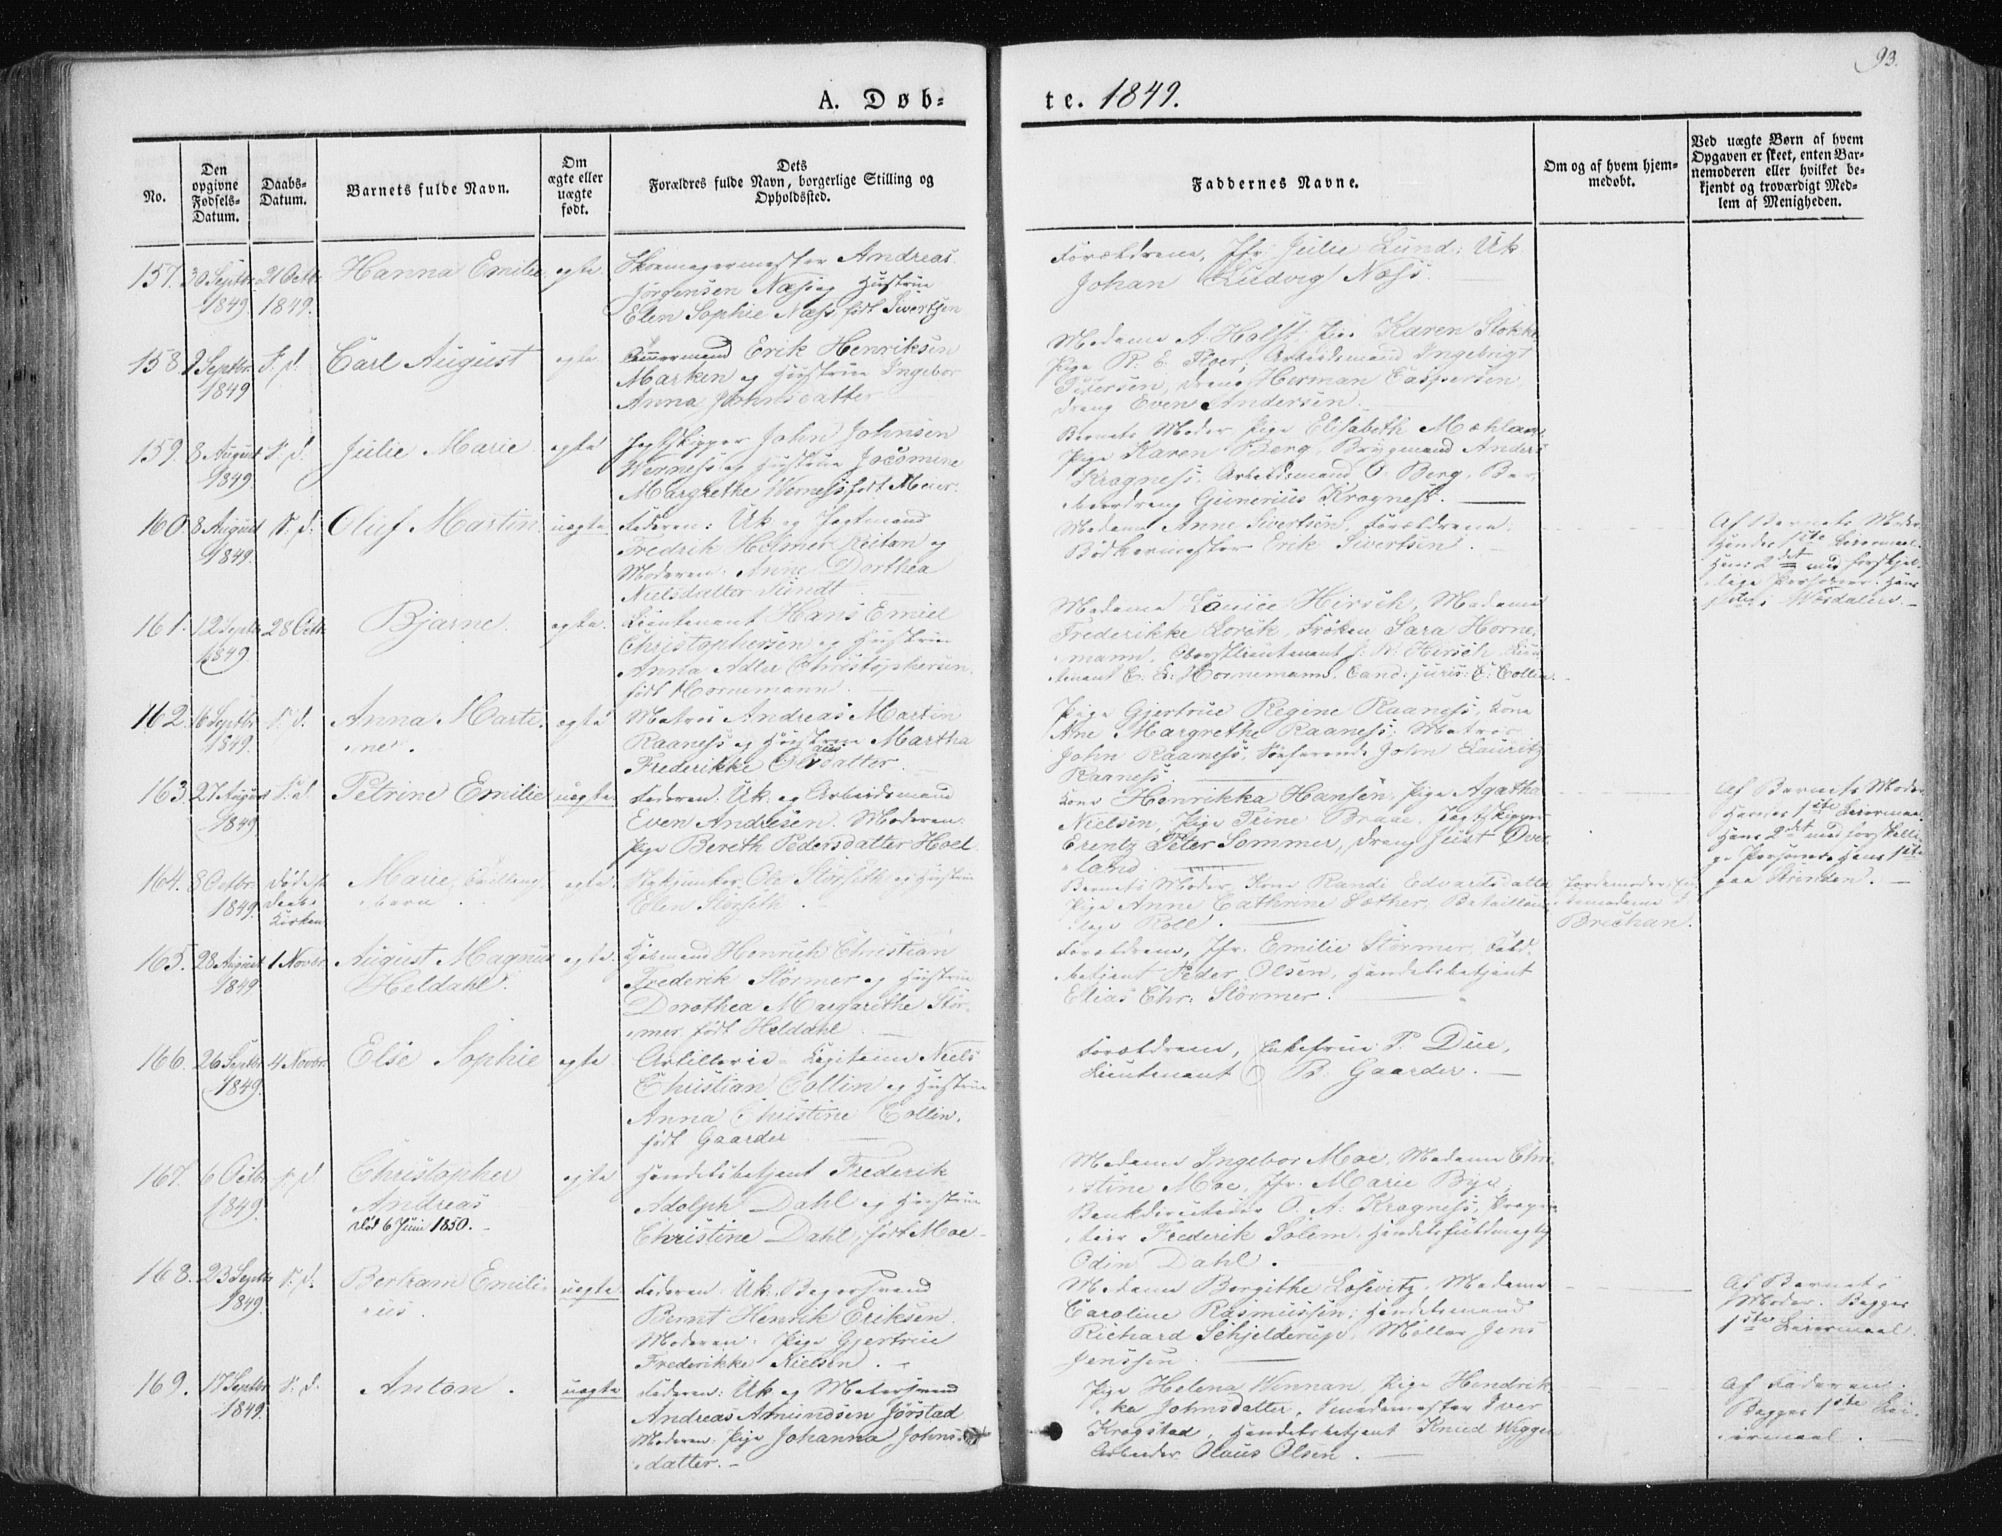 93.
A. Døb-
te. 1849.
No.
Den
opgivne
Fødsels-
Datum.
Daabs-
Datum.
Barnets fulde Navn.
Om
ægte eller
uægte
født.
Dets
Forældres fulde Navn, borgerlige Stilling og
Opholdssted.
Faddernes Navne.
Om og af hvem hjem-
medøbt.
Ved uægte Børn af hvem
Opgaven er skeet, enten Bar-
nemoderen eller hvilket be-
kjendt og troværdigt Med-
lem af Menigheden.
157. 30 Septbr. 1849 21 Octbr. 1849. Hanna Emilie egte
Skomagermester Andreas
Jørgensen Næss og Hustrue
Elen Sophie Næss født Sivertsen
Forældrene, Jfr. Julie Lund, Uk
Johan Ludvig Næss.
158. Septbr. 1849 S. d. Carl August egte
Tømmermand Erik Henriksen
Marken og Hustrue Ingebor
Anna Johnsdatter
Madame A. Holst, Pige Karen Stokke
Pige R. E. Arbeidsmand Ingebrigt
Petersen, Dreng Herman Caspersen,
Dreng Even Andersen.
159. 8 August 1849 S. d. Julie Marie egte
Jagtskipper John Johnsen
Werness og Hustrue Jacomine
Margrethe Werness født Meier.
Barnets Moder, Pige Elisabeth Mæhlan,
Pige Karen Berg, Brygmand Anders
Kragness, Arbeidsmand O. Berg,
Gunerius Kragness.
160. 8 August 1849 S. d. Oluf Martin uegte
Faderen: Uk og Jagtmand
Fredrik Helmer Reitan og
Moderen: Anne Dorthea
Nielsdatter Sundt
Madame Anne Sivertsen, Forældrene,
Bødkermester Erik Sivertsen.
Af Barnets Moder.
Hendes 1ste Leiermaal
Hans 2det med forskjel-
lige Personer. Hans
1ste i Værdalen.
161. 12 Septbr 1849 28 Octb. Bjarne. egte
Lieutenant Hans Emiel
Christophersen og Hustrue
Anna Adler Christophersen,
født Hornemann.
Madame Louise Hirsch, Madame
Frederikke Lorck, Frøken Sara Horne-
mann, Oberstlieutenant J. W. Hirsch, Lieu-
tenant C. E. Hornemann, Cand: juris: C: Collin.
162. 16 Septbr. 1849. S. d. Anna Marti-
ne. egte
Matros Andreas Martin
Raaness og Hustrue Martha
Frederikke Olsdatter.
Pige Gjertrue Regine Raaness, Kone
Ane Margrethe Raaness, Matros
John Raaness, Søefarende John Lauritz
Raaness.
163. 27 August 1849. S. d. Petrine Emilie uegte
Faderen: Uk. og Arbeidsmand
Even Andresen. Moderen:
Pige Bereth Pedersdatter Hoel.
Kone Henrikka Hansen, Pige Agatha
Nielsen, Pige Trine Braae, Jagtskipper
Erentz Peter Sommer, Dreng Just Øver-
land.
Af Barnets Moder,
Hendes 1ste Leiermaal
Hans 2det med forskelli-
ge Personer. Hans 1ste
paa Strinden.
164. 8 Octbr. 1849. Marie, Tvilling-
barn. egte
Ole Størseth og Hustrue
Elen Størseth.
Barnets Moder, Kone Randi Edvardsdatter
Pige Anne Cathrine Sæther, Batallions-
læge Roll.
Jordemoder
Brichan.
165. 28 August 1849 1 Novbr. August Magnus
Heldahl. egte
Kjøbmand Henrich Christian
Frederik Størmer og Hustrue
Dorothea Margarethe Stør-
mer, født Heldahl
Forældrene, Jfr. Emilie Størmer,
Peder Olsen, Handelsbetjent
Elias Chr: Størmer.
166. 26 Septbr 1849. 4 Novbr. Else Sophie egte
Artillerie-Capitaine Niels
Christian Collin og Hustrue
Anna Christine Collin,
født Gaarder
Forældrene, Enkefrue P. Due,
Lieutenant O. B. Gaarder.
167. 6 Octbr. 1849. S. d. Christopher
Andreas
død 6 Juni 1850. egte
Handelsbetjent Frederik
Adolph Dahl og Hustrue
Christine Dahl, født Moe
Madame Ingebor Moe, Madame Chri-
stine Moe, Jfr. Marie Bye,
Bankdirecteur O. A. Kragness,
Frederik Solem, Handelsfuldmægtig
Odin Dahl.
168. 23 Septbr 1849. S. d. Bertram Emili-
us. uegte
Faderen: Uk. Bagersvend
Bernt Henrik Eriksen.
Moderen: Pige Gjertrue
Frederikke Nielsen.
Madame Borgithe Madame
Caroline Rasmussen, Handelsmand
Richard Schjelderup, Møller Jens
Jenssen
Af Barnets
Moder. Begges
1ste Leiermaal.
169. 17 Septbr 1849. S. d. Anton. uegte
Faderen: Uk og Malersvend
Andreas Amundsen Jørstad.
Moderen: Pige Johanna Johns-
datter.
Pige Helena Winnan, Pige Hendrik-
ka Johnsdatter, Smedemester Iver
Krogstad, Handelsbetjent Knud Wiggen
Arbeider Olaus Olsen.
Af Faderen.
Begges 1ste Lei-
ermaal.